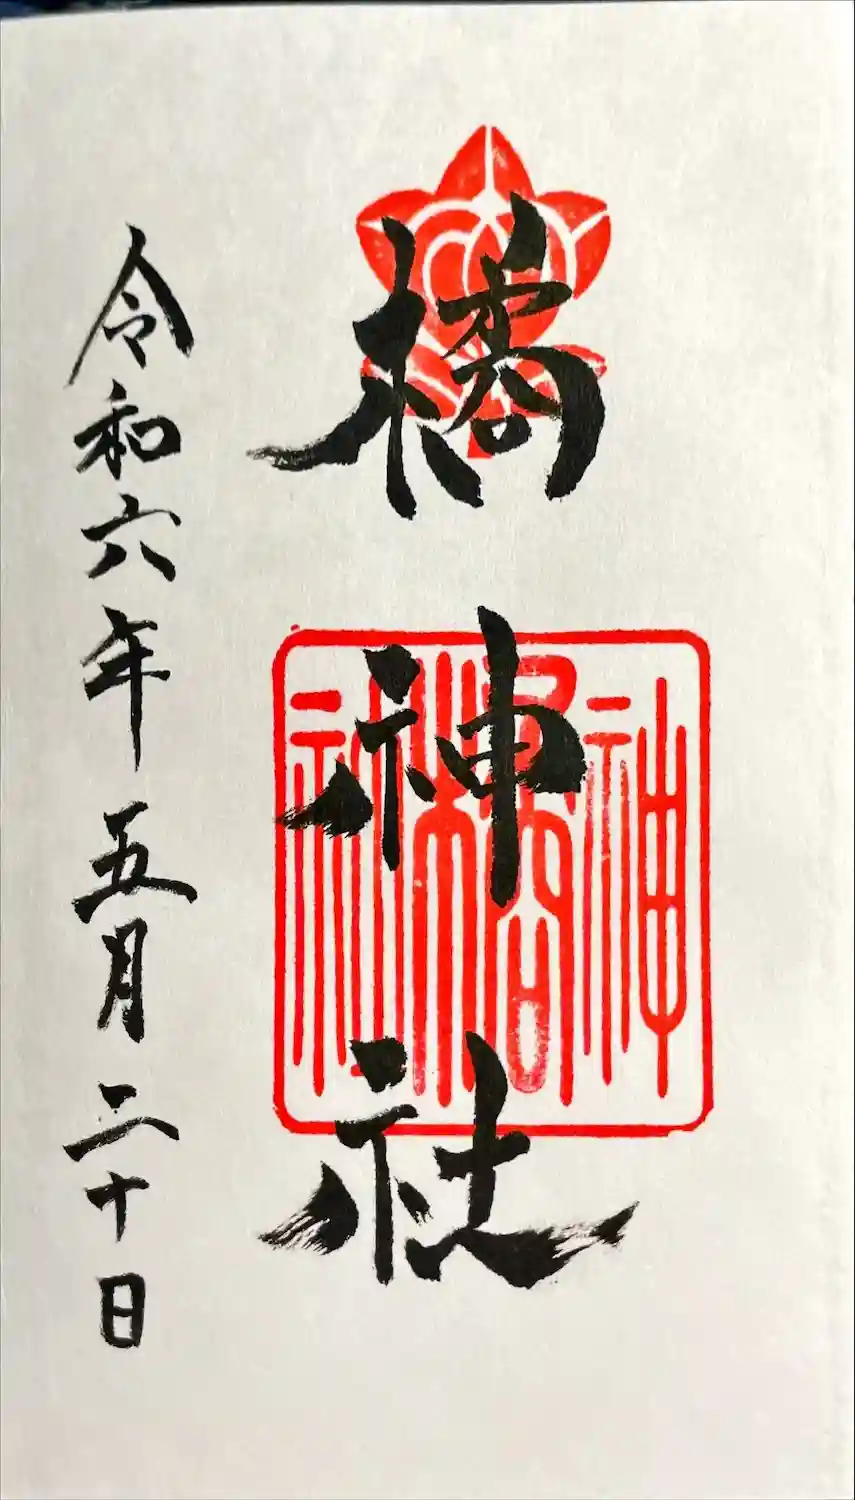 橘神社
神
橘
社
令和六年五月二十日